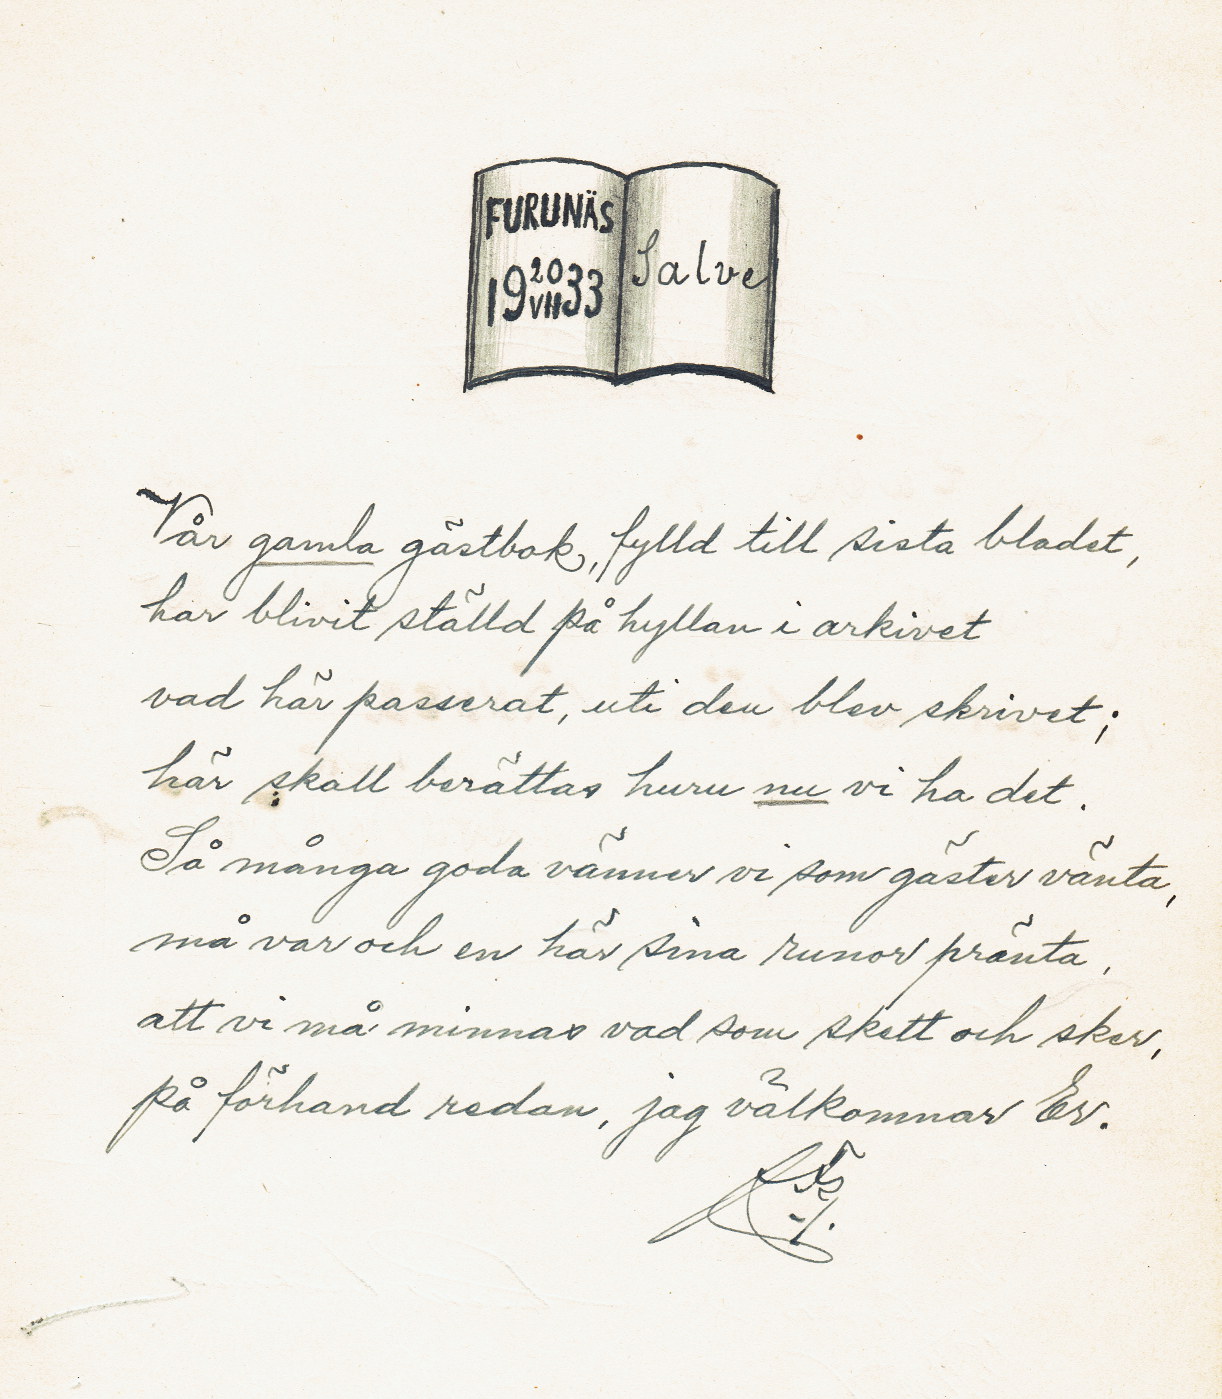 FURUNÄS
19 20/VII 33
Salve
Vår gamla gästbok, fylld till sista bladet,
har blivit ställd på hyllan i arkivet
vad här passerat, uti den blev skrivet;
här skall berättas huru nu vi ha det.
Så många goda vänner vi som gäster vänta,
må var och en här sina runor pränta,
att vi må minnas vad som skett och sker,
på förhand redan, jag välkomnar Er.